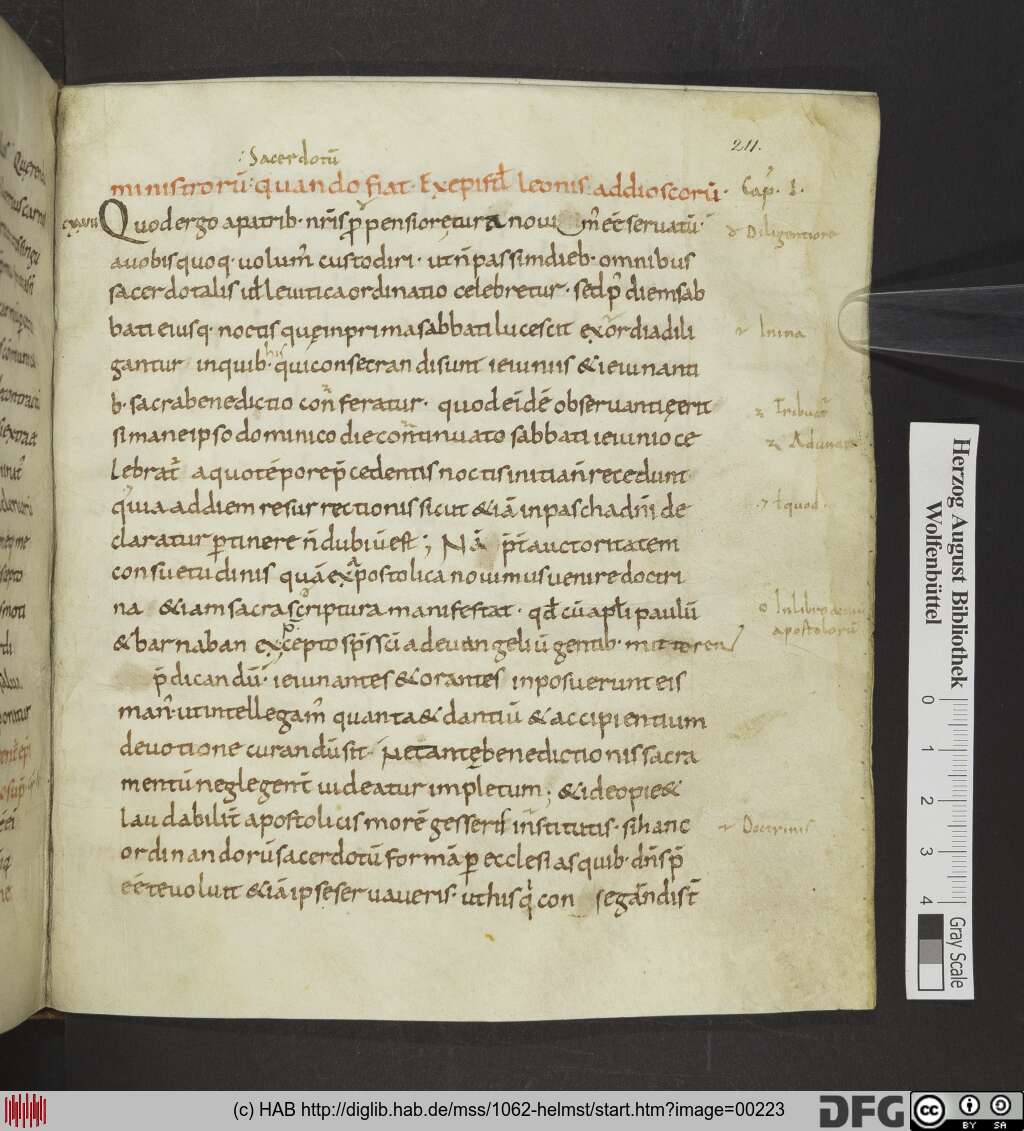 211.
: Sacerdotū
ministrorū quando fiat. Ex epistl leonis addioscorū. Cap. 1.
Quod ergo a patrib. nr̄is ꝓpensiore cura novim̄ eē servatū.
⁊ Diligentiore
a vobis quoq. volum̄ custodiri. ut n̄ passim dieb. omnibus
sacerdotalis vl levitica ordinatio celebretur. sed p̄ diem sab
bati eiusq. noctis quę in prima sabbati lucescit exordia dili
⁊ In ina
gantur in quib. his qui consecrandi sunt ieiuniis & ieiunanti
b. sacra benedictio conferatur. quod eidē observantię erit
⁊ Tribuat̄
si mane ipso dominico die continuato sabbati ieiunio ce
lebrat̄ a quo tēpore p̄cedentis noctis initia n̄ recedunt
quia ad diem resurrectionis sicut & iā in pascha dn̄i de
⁊ quod.
claratur ꝑtinere n̄ dubiū est; Nā p̄t auctoritatem
consuetudinis quā ex apostolica novimus venire doctri
na & iam sacra scriptura manifestat. qd̄ cū apl̄i paulū
In libro actuū
apostolorū
& barnaban ex p̄cepto sp̄s sc̄i ad evangeliū gentib. mitterent
p̄dicandū. ieiunantes & orantes inposuerunt eis
man̄. ut intellegam̄ quanta & dantiū & accipientium
devotione curandū sit. ne tantę benedictionis sacra
mentū neglegent̄ videatur impletum; & ideo pie &
laudabilit̄ apostolicis morē gesseris institutis. si hanc
⁊ Doctrinis
ordinandorū sacerdotū formā ꝑ ecclesias quib. dn̄s p̄
eē te voluit & iā ipse servaveris. ut his qi consegrandi st̄
Herzog August Bibliothek
Wolfenbüttel
0 1 2 3 4
Gray Scale
(c) HAB http://diglib.hab.de/mss/1062-helmst/start.htm?image=00223
DFG
cc BY SA